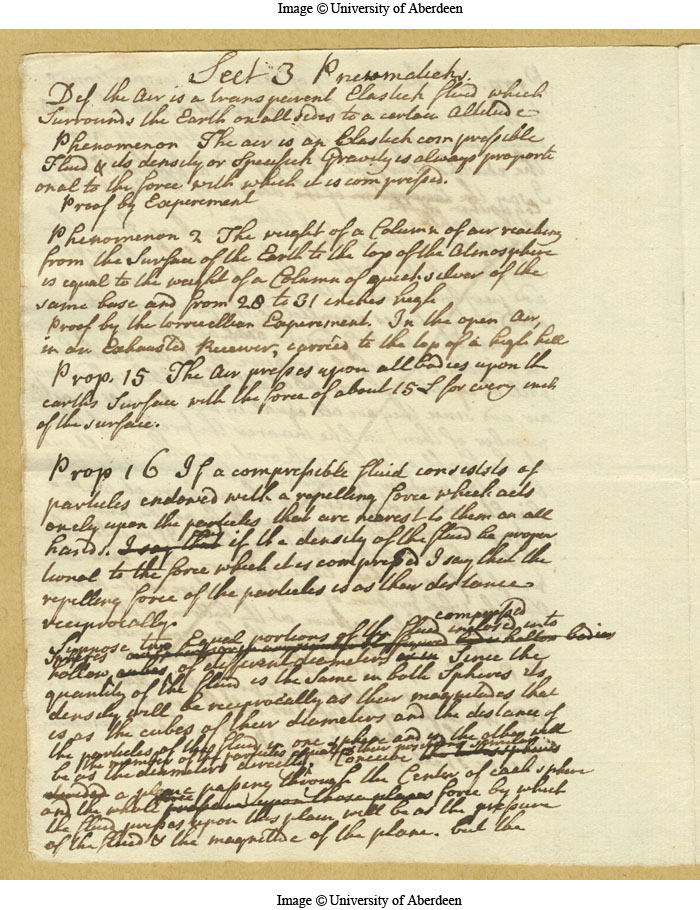 Image © University of Aberdeen
Sect 3 Pneumaticks.
Def the Air is a transparent Elastick fluid which
Surrounds the Earth on all sides to a certain Altitude
Phenomenon The air is an Elastick compressible
Fluid & its density or Specifick Gravity is always proporti
onal to the force with which it is compressed.
Proof by Experiment
Phenomenon 2 The weight of a Column of air reaching
from the Surface of the Earth to the top of the Atmosphere
is equal to the weight of a Column of quick silver of the
same base and from 28 to 31 inches high
Proof by the torricellian Experement. In the open Air,
in an Exhausted Receiver, carried to the top of a high hill
Prop. 15 The Air presses upon all bodies upon the
earths Surface with the force of about 15 L for every inch
of the surface.
Prop 16 If a compressible fluid consists of
particles endowed with a repelling force which acts
onely upon the particles that are nearest to them on all
hands. I say that if the density of the fluid be propor
tional to the force which it is compressed I say that the
repelling force of the particles is as their distance
reciprocally.
compressed
Suppose two Equal portions of the fluid inclosed into
Spheres
hollow cubes of different diameters Since the
quantity of the fluid is the same in both Spheres its
density will be reciprocally as their magnitudes that
is as the cubes of their diameters and the distance of
the particles of this fluid in one sphere and in the other will
the number of the particles
be as the diameters directly. Conceive
a plane passing through the Center of each sphere
and the whole force by which
the fluid presses upon this plain will be as the pressure
of the fluid & the magnitude of the plane. but the
Image © University of Aberdeen